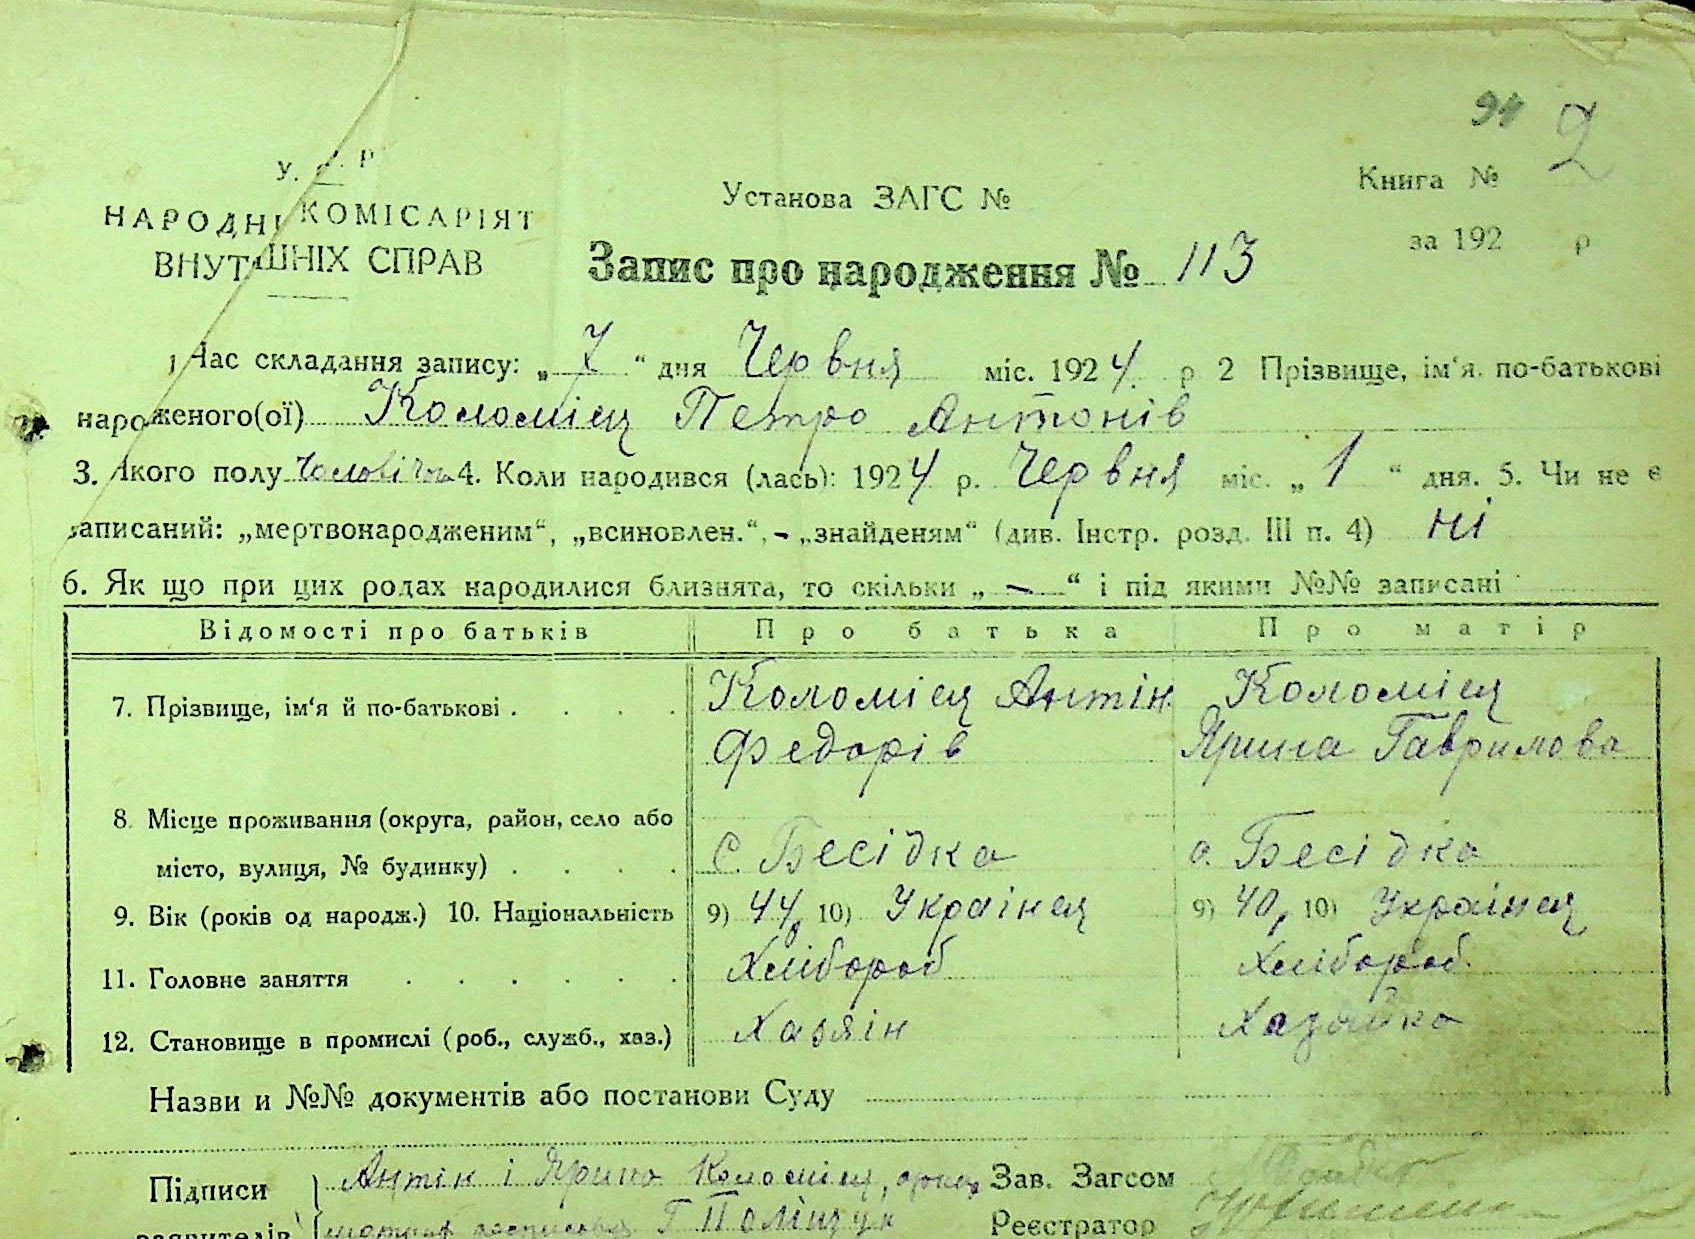 91 2
У. С. Р
Книга №
Установа ЗАГС №
НАРОДНІ КОМІСАРІЯТ
за 192 р
ВНУТ ШНІХ СПРАВ
Запис про народження № 113
1 Час складання запису: „ 7 “ дня Червня міс. 1924 р 2 Прізвище, ім‘я, по-батькові
народженого(ої) Коломієц Петро Антонів
3. Якого полу Чоловічои 4. Коли народився (лась): 1924 р. Червня міс. „ 1 “ дня. 5. Чи не є
записаний: „мертвонародженим“, „всиновлен.“, - „знайденям“ (див. Інстр. розд. III п. 4) ні
6. Як що при цих родах народилися близнята, то скільки „ — “ і під якими №№ записані
Відомості про батьків Про батька Про матір
7. Прізвище, ім‘я й по-батькові . . . . Коломієц Антін Коломієц
Федорів Ярина Гаврилова
8. Місце проживання (округа, район, село або
місто, вулиця, № будинку) . . . . с. Бесідка с. Бесідка
9. Вік (років од народж.) 10. Національність 9) 44, 10) Українец 9) 40, 10) Українец
11. Головне заняття . . . . . . Хлібороб Хлібороб.
12. Становище в промислі (роб., служб., хаз.) Хазяін Хазяйка
Назви и №№ документів або постанови Суду
Підписи Антін і Ярина Коломієц, Зав. Загсом
заявителів Г Поліщук Реєстратор